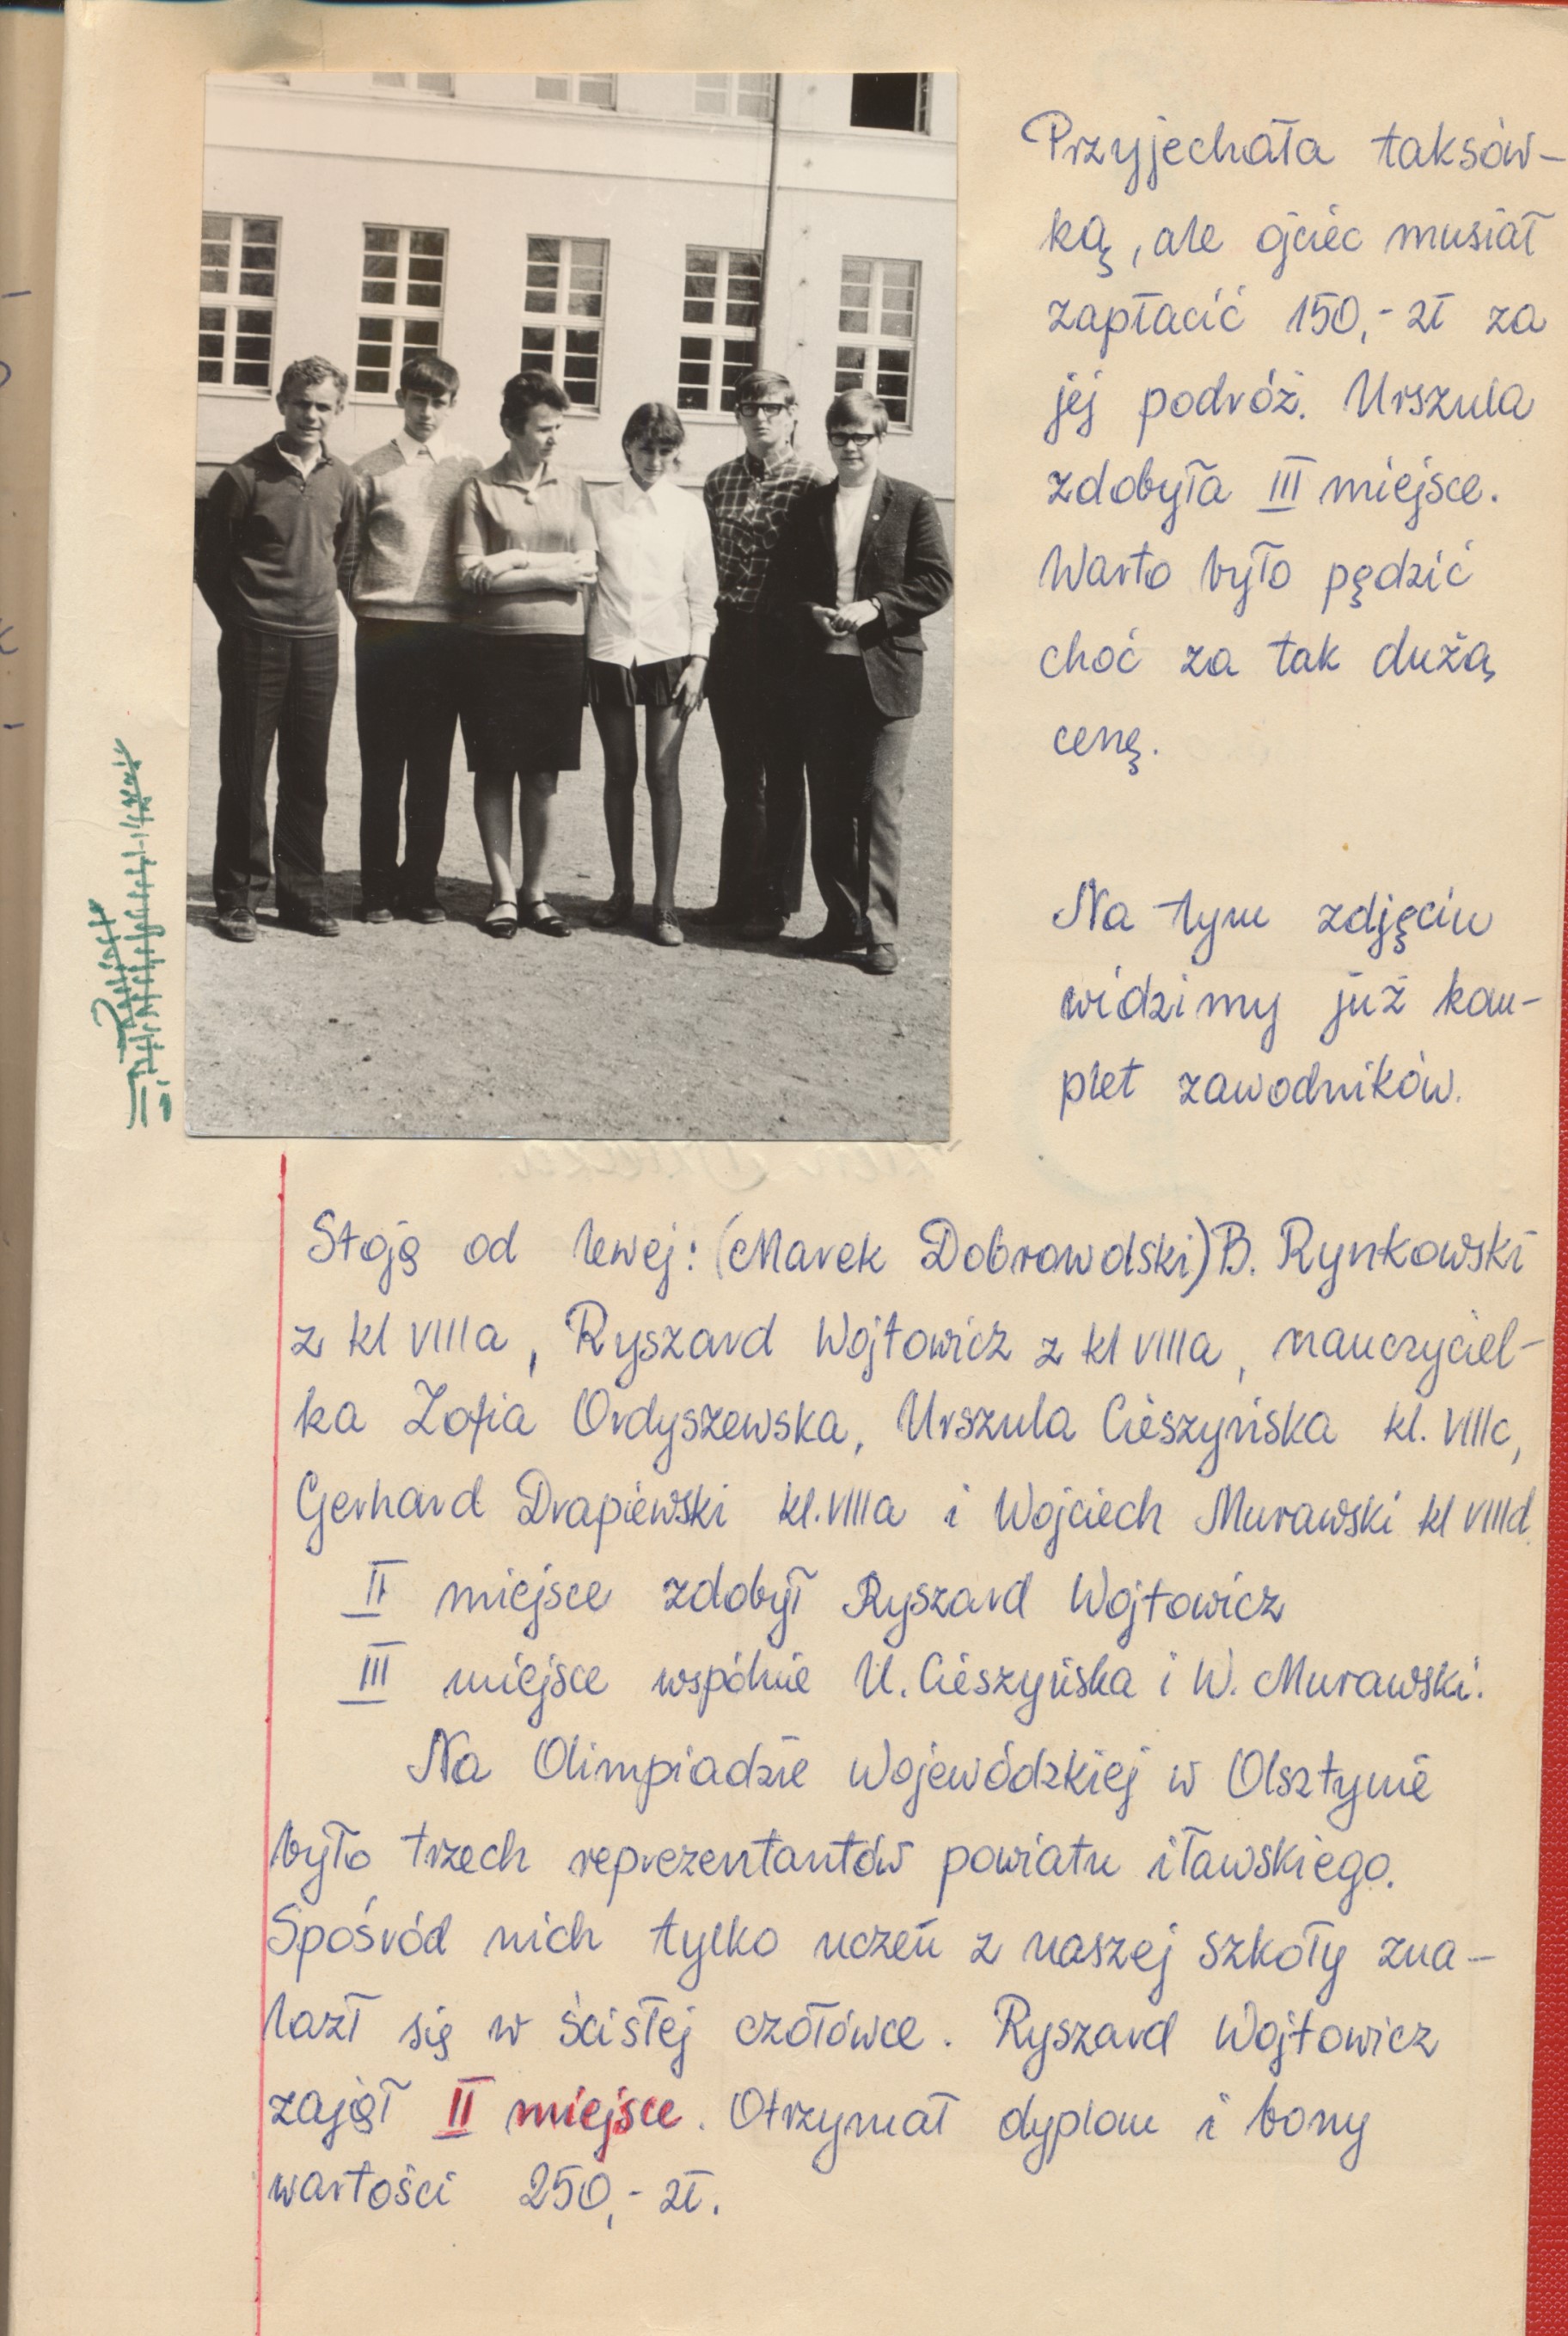 Przyjechała taksów-
ką, ale ojciec musiał
zapłacić 150,- zł za
jej podróż. Urszula
zdobyła III miejsce.
Warto było pędzić
choć za tak dużą
cenę.
Na tym zdjęciu
widzimy już kom-
plet zawodników.
Stoją od lewej: (Marek Dobrowolski) B. Rynkowski
z kl VIIIa, Ryszard Wojtowicz z kl VIIIa, nauczyciel-
ka Zofia Ordyszewska, Urszula Cieszyńska kl. VIIIc,
Gerhard Drapiewski kl. VIIIa i Wojciech Murawski kl VIIId.
II miejsce zdobył Ryszard Wojtowicz
III miejsce wspólnie U. Cieszyńska i W. Murawski.
Na Olimpiadzie Wojewódzkiej w Olsztynie
było trzech reprezentantów powiatu iławskiego.
Spośród nich tylko uczeń z naszej szkoły zna-
lazł się w ścisłej czołówce. Ryszard Wojtowicz
zajął II miejsce. Otrzymał dyplom i bony
wartości 250,- zł.